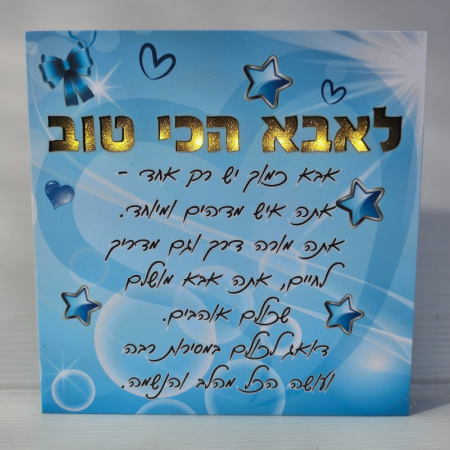 לאבא הכי טוב
אבא כמוך יש רק אחד -
אתה איש מדהים ומיוחד.
אתה מורה דרך וגם מדריך
לחיים, אתה אבא מושלם
שכולם אוהבים.
דואג לכולם במסירות רבה
ועושה הכל מהלב והנשמה.